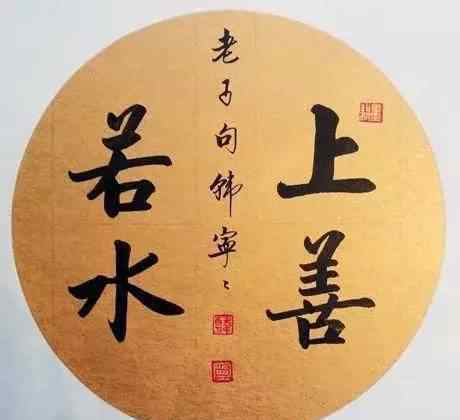 上善
若水
老子句韩宁宁